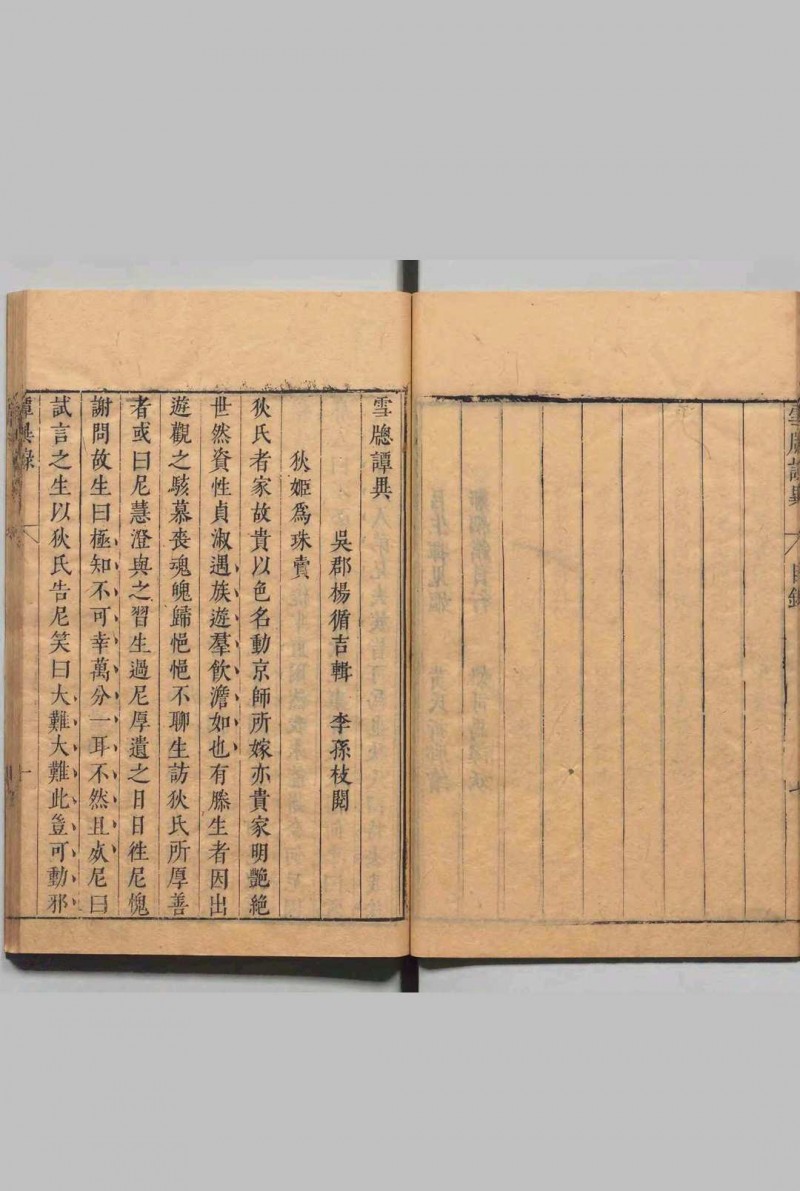 雪牕譚異
目錄
雪牕譚異
吳郡楊循吉輯　李孫枝閱
狄姬爲珠賣
狄氏者家故貴以色名動京師所嫁亦貴家明艷絕
世然資性貞淑遇族遊羣飲澹如也有滕生者因出
遊觀之駭慕喪魂魄歸悒悒不聊生訪狄氏所厚善
者或曰尼慧澄與之習生過尼厚遺之日日徃尼愧
謝問故生曰極知不可幸萬分一耳不然且死尼曰
試言之生以狄氏告尼笑曰大難大難此豈可動邪
譚異錄
一